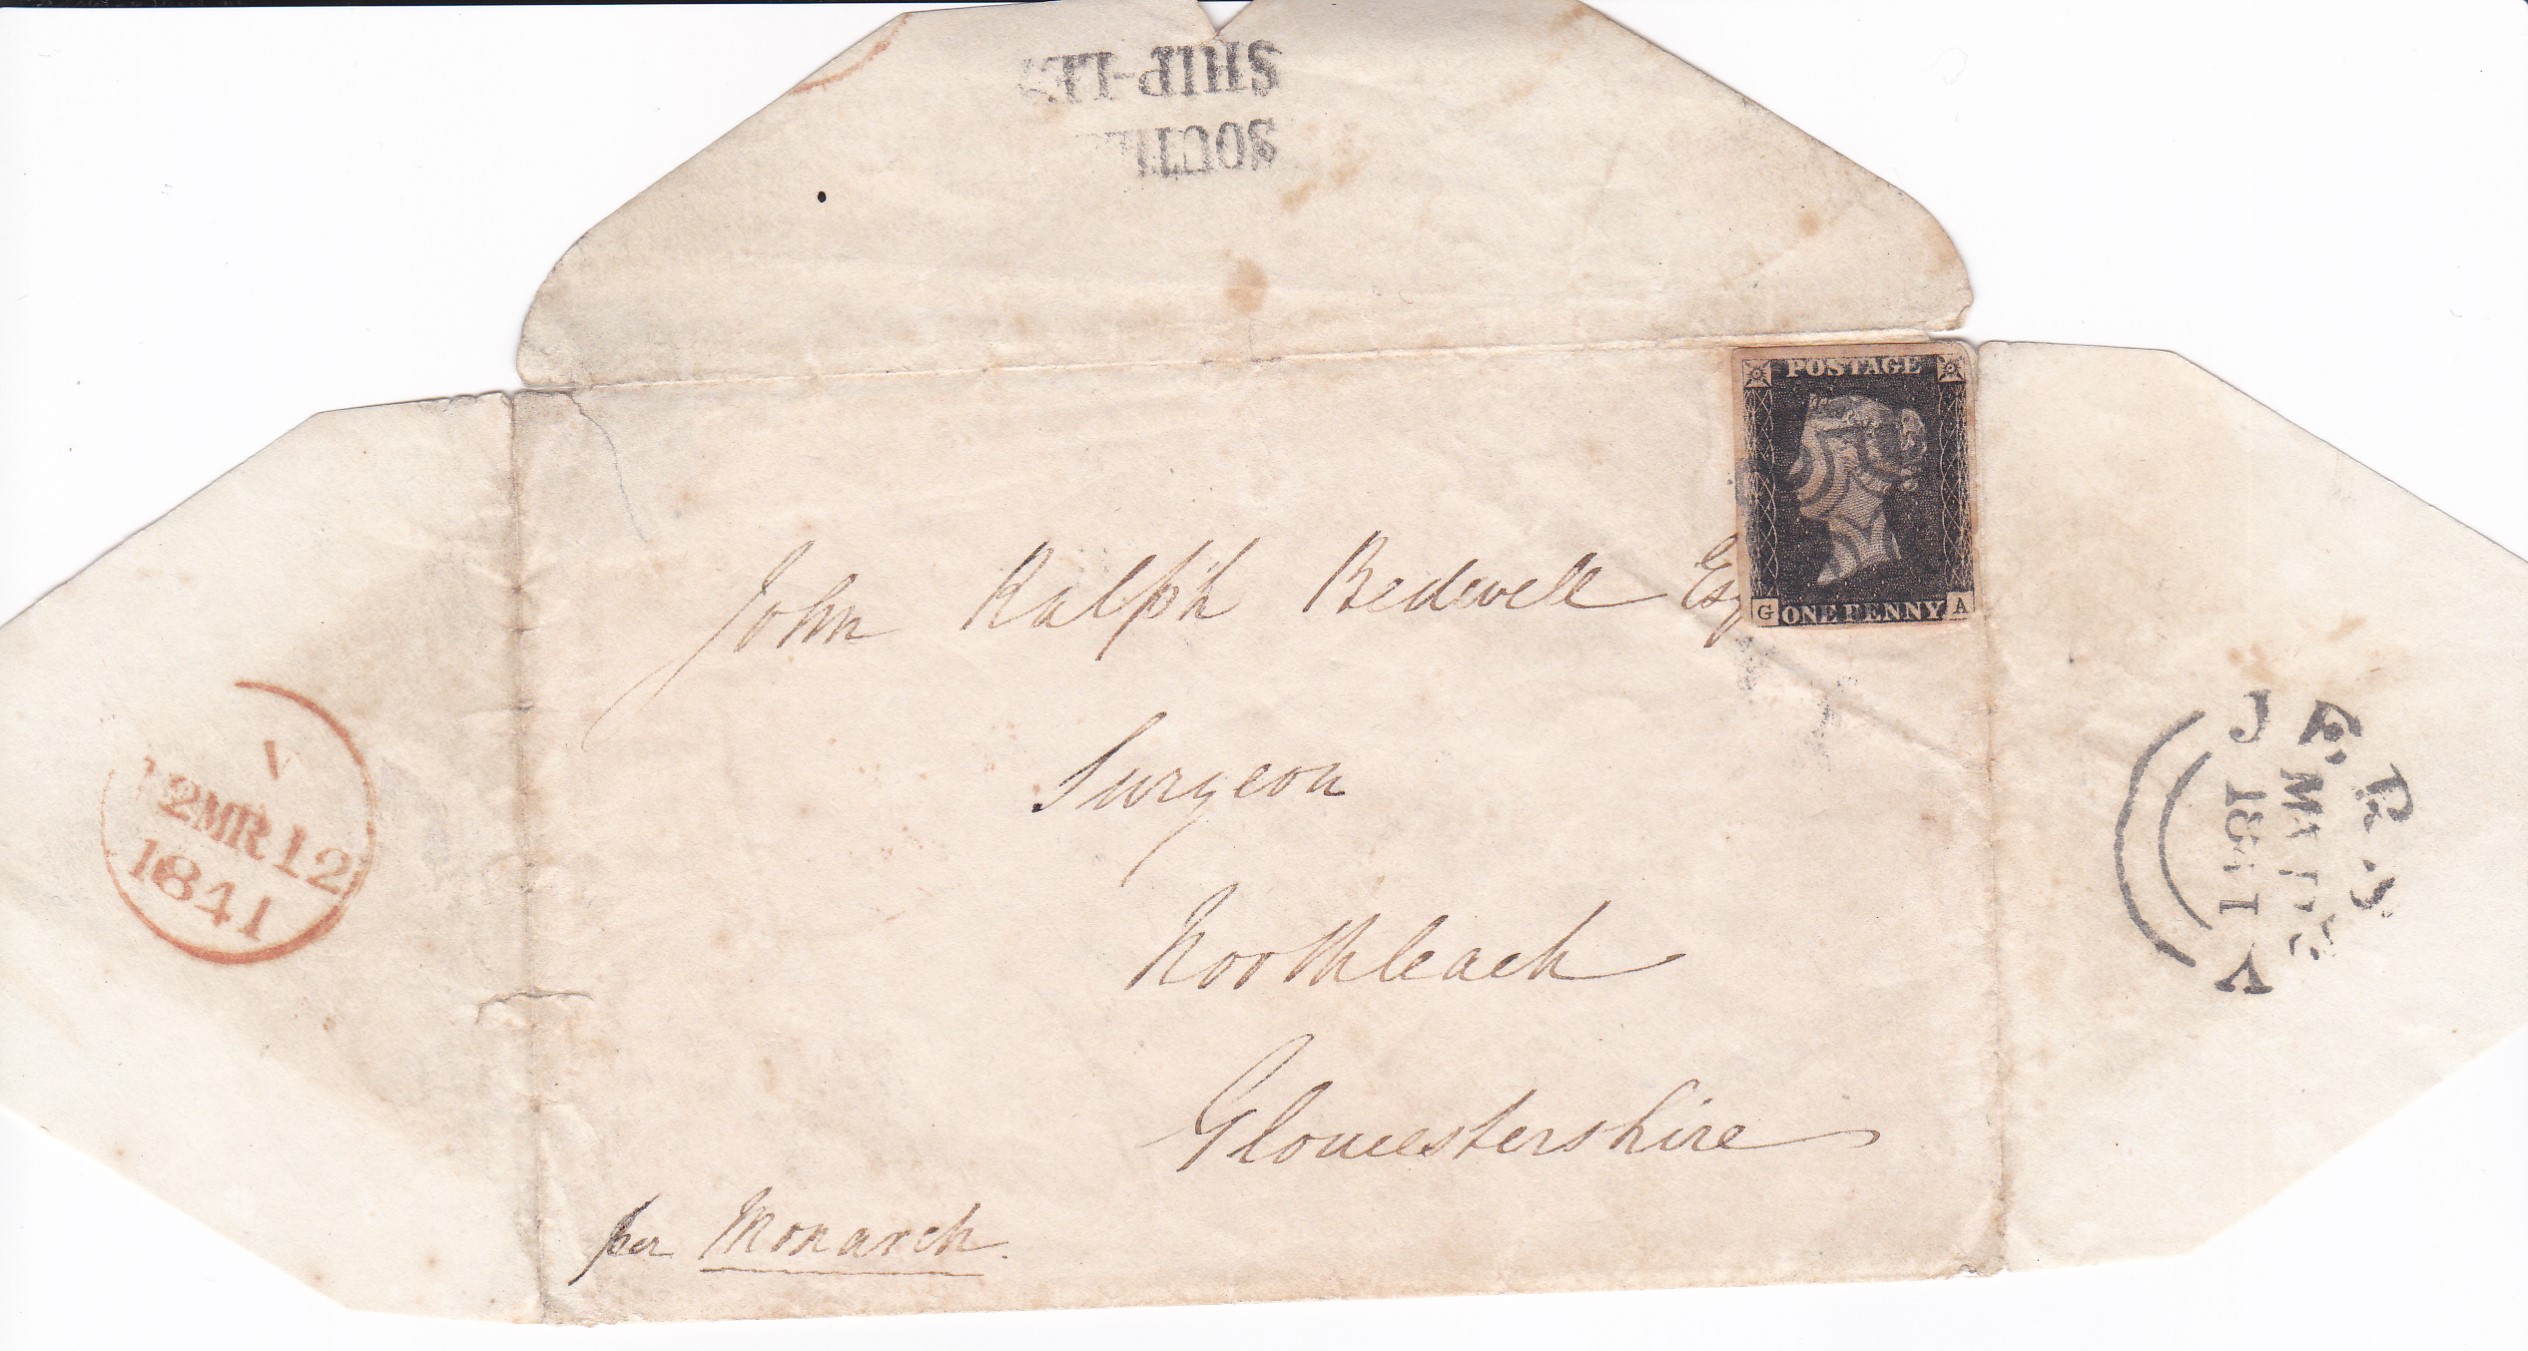 SHIP-LE
SOUTH
POSTAGE
G ONE PENNY A
John Ralph Bedwell Esq
Surgeon
Northleach
Gloucestershire
per Monarch.
V
12MR12
1841
JERSEY
1841